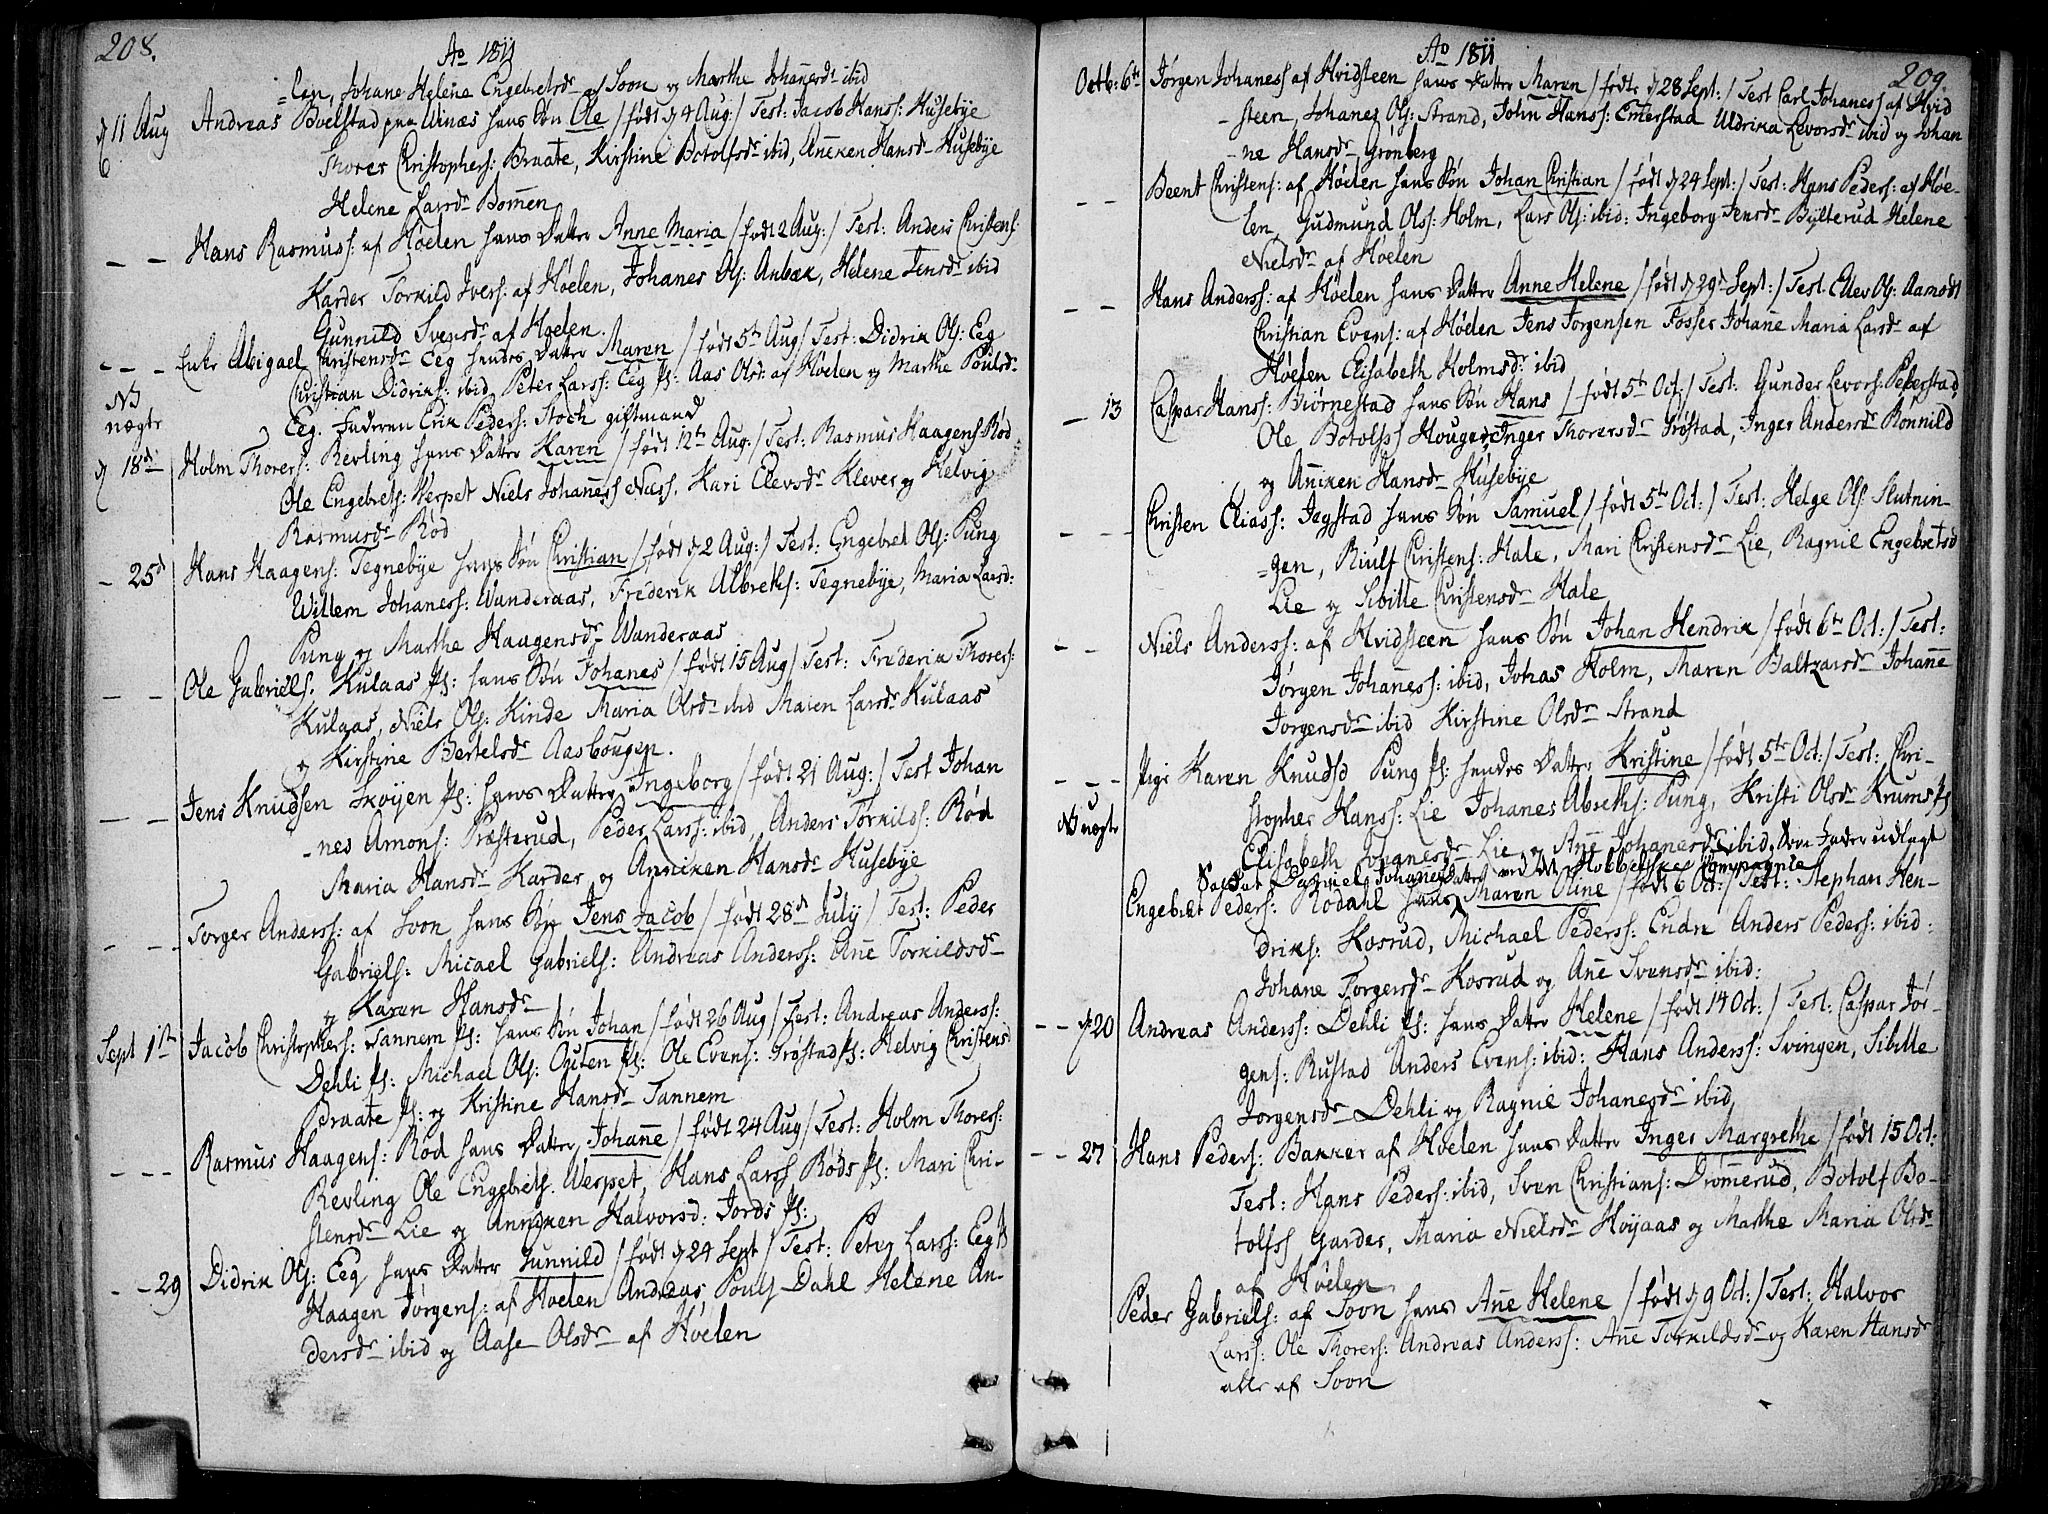 208.
Ao 1811
=len, Johane Helene Engebretsdr af Soon og Marthe Johanesdr ibid
d 11 Aug Andreas Boelstad paa Winæs hans Søn Ole / født d 4 Aug: / Test: Jacob Hanss: Husebye
Thores Christophers: Braate, Kirstine Botolfsdr ibid, Aneken Hansdr Husebye
Helene Larsdr Bomen
— — Hans Rasmuss: af Høelen hans Datter Anne Maria / født 2 Aug: / Test: Anders Christens:
Karder Torkild Ivers: af Høelen, Johanes Ols: Anbæk, Helene Jensdr ibid
Gunnild Svensdr af Høelen
— — — Enke Abigael Christensdr Eeg hendes Datter Maren / født 5te Aug / Test: Didrik Ols: Eeg
NB Christian Didriks: ibid, Peter Larss: Eeg Ps: Aas Olsdr af Høelen og Marthe Poulsdr
nægte Eeg. Faderen Erik Peders: Stoch giftmand
d 18de Holm Thorers: Revling hans Datter Karen / født 12te Aug: / Test: Rasmus Haagens Rød
Ole Engebrets: Werpet Niels Johaness Næss, Kari Elevsdr Klever og Helvig
Rasmusdr Rød
— 25d Hans Haagens: Tegnebye hans Søn Christian / født d 2 Aug: / Test: Engebret Ols: Pung
Willem Johaness: Wanderaas, Frederik Albreths: Tegnebye, Maria Larsd:
Pung og Marthe Haagensdr Wanderaas
— — Ole Gabriels. Kulaas Ps: hans Søn Johanes / født 15 Aug / Test: Frederia Thorers:
Kulaas, Niels Ols: Kinde Maria Olsdr ibid Maren Larsdr Kulaas
og Kirstine Bertelsdr Aasbougen.
— — Jens Knudsen Skoyen Ps: hans Datter Ingeborg / født 21 Aug: / Test Johan
-nes Amons: Præsterud, Peder Larss: ibid, Anders Torkilds: Rød
Maria Hansdr Karder og Anniken Hansdr Husebye
— — Torger Anderss: af Soon hans Søn Jens Jacob / født 28d July / Test: Peder
Gabriels: Micael Gabriels: Andreas Anderss: Ane Torkildsdr
og Karen Hansdr
Sept 1ste Jacob Christophers: Tannem Ps: hans Søn Johan / født 26 Aug / Test: Andreas Anderss:
Dehli Ps: Michael Ols: Ousen Ps: Ole Evens: Trøstad Ps: Helvig Christensd
Braate Ps: og Kristine Hansdr Tannem
— — — Rasmus Haagens: Rød hans Datter Johane / født 24 Aug / Test: Holm Thorers:
Revling Ole Engebrets. Werpet, Hans Larss Røds Ps: Mari Chri-
stensdr Lie og Anniken Halvorsd: Jords Ps:
— — 29 Didrik Ols: Eeg hans Datter Gunnild / født d 24 Sept / Test: Peter Larss: Eeg Ps
Haagen Jørgens: af Høelen Andreas Pouls Dahl Helene An-
dersdr ibid og Aase Olsdr af Høelen
209.
Ao 1811
Octb: 6te Jørgen Johaness af Hvidsteen hans Datter Maren / føde d 28 Sept: / Test Carl Johaness af Hvid
-steen, Johanes Ols: Strand, John Hanss: Emerstad Uldrika Levorsdr ibid og Johan
-ne Hansdr Grønberg
— — Beent Christens: af Høelen hans Søn Johan Christian / født d 24 Sept: / Test: Hans Peders: af Høe-
len, Gudmund Ols: Holm, Lars Ols: ibid: Ingeborg Jensdr Bylterud Helene
Nielsdr af Høelen
— — Hans Anderss: af Høelen hans Datter Anne Helene / født d 29 Sept: / Test: Ellev Ols: Aamodt
Christian Evens: af Høelen Jens Jorgensen Fosser Johane Maria Larsdr af
Høelen Elisabeth Holmsdr ibid
— 13 Caspar Hanss: Biørnestad hans Søn Hans / født 5te Oct: / Test: Gunder Levors: Peberstad,
Ole Botolfss Houger, Inger Thorersdr Trøstad, Inger Andersdr Ronnild
og Aniken Hansdr Husebye
— — Christen Eliass: Jegstad hans Søn Samuel / født 5te Oct: / Test: Helge Ols: Slutnin-
=gen, Riulf Christens: Hale, Mari Christensdr Lie, Ragnil Engebretsd
Lie og Sibille Christensdr Hale
— — Niels Anderss: af Hvidsteen hans Søn Johan Hendrik / født 6te Oct: / Test:
Jørgen Johaness: ibid, Johas Holm, Maren Baltzarsdr Johane
Jorgensdr ibid Kirstine Olsdr Strand
— — — Pige Karen Knudsd Pung Ps: hendes Datter Kristine / født 5te Oct: / Test: Chri-
NB nægte stopher Hanss: Lie Johanes Abreths: Pung, Kristi Olsdr Krums Ps
Elisabeth Johanesdr Lie og Ane Johanesdr ibid, Som Fader udlagt
Soldat Daniel Johanes ved det Hobbelske Compagnie
Engebret Peders: Rødahl hans Datter Maren Oline / født 6 Oct: / Test: Stephan Hen-
driks: Kosrud, Michael Peders: Endn Anders Peders: ibid:
Johane Torgersdr Kosrud og Ane Svensdr ibid:
— — d 20 Andreas Anderss: Dehli Ps: hans Datter Helene / født 14 Oct: / Test: Caspar Jør-
gens: Rustad Anders Evens: ibid: Hans Anderss: Svingen, Sibille
Jorgensdr Dehli og Ragnil Johanesdr ibid,
— — 27 Hans Peders: Bakker af Høelen hans Datter Inger Margrethe / født 15 Oct:
Test: Hans Peders: ibid, Sven Christians: Drømerud, Botolf Bo-
tolfss Garder, Maria Nielsdr Høyaas og Marthe Maria Olsdr
af Høelen
Peder Gabriels: af Soon hans Ane Helene / født d 9 Oct: / Test: Halvor
Larss: Ole Thorers: Andreas Anderss: Ane Torkildsdr og Karen Hansdr
alle af Soon